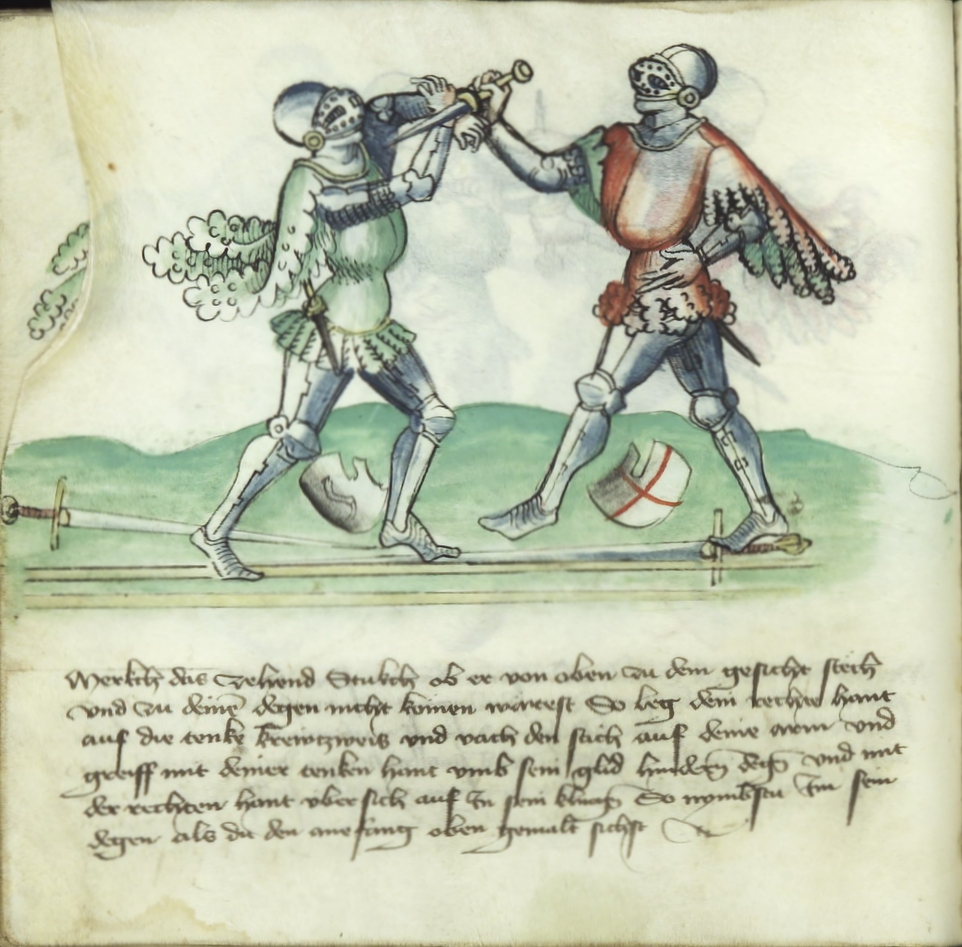 Merkch das zehend Stukch ob er von oben zu dem gesicht stech
vnd zu deinē degen nicht komen macest So leg dein rechte hant
auf die tenke krewtzweis vnd vach den stich auf deine arm vnd
greiff mit deiner tenken hant vmb sein glid hindern degn vnd mit
der rechten hant vbersich auf In sein klingn So nymbstu Im sein
degen als du den anefang oben gemalt sichst